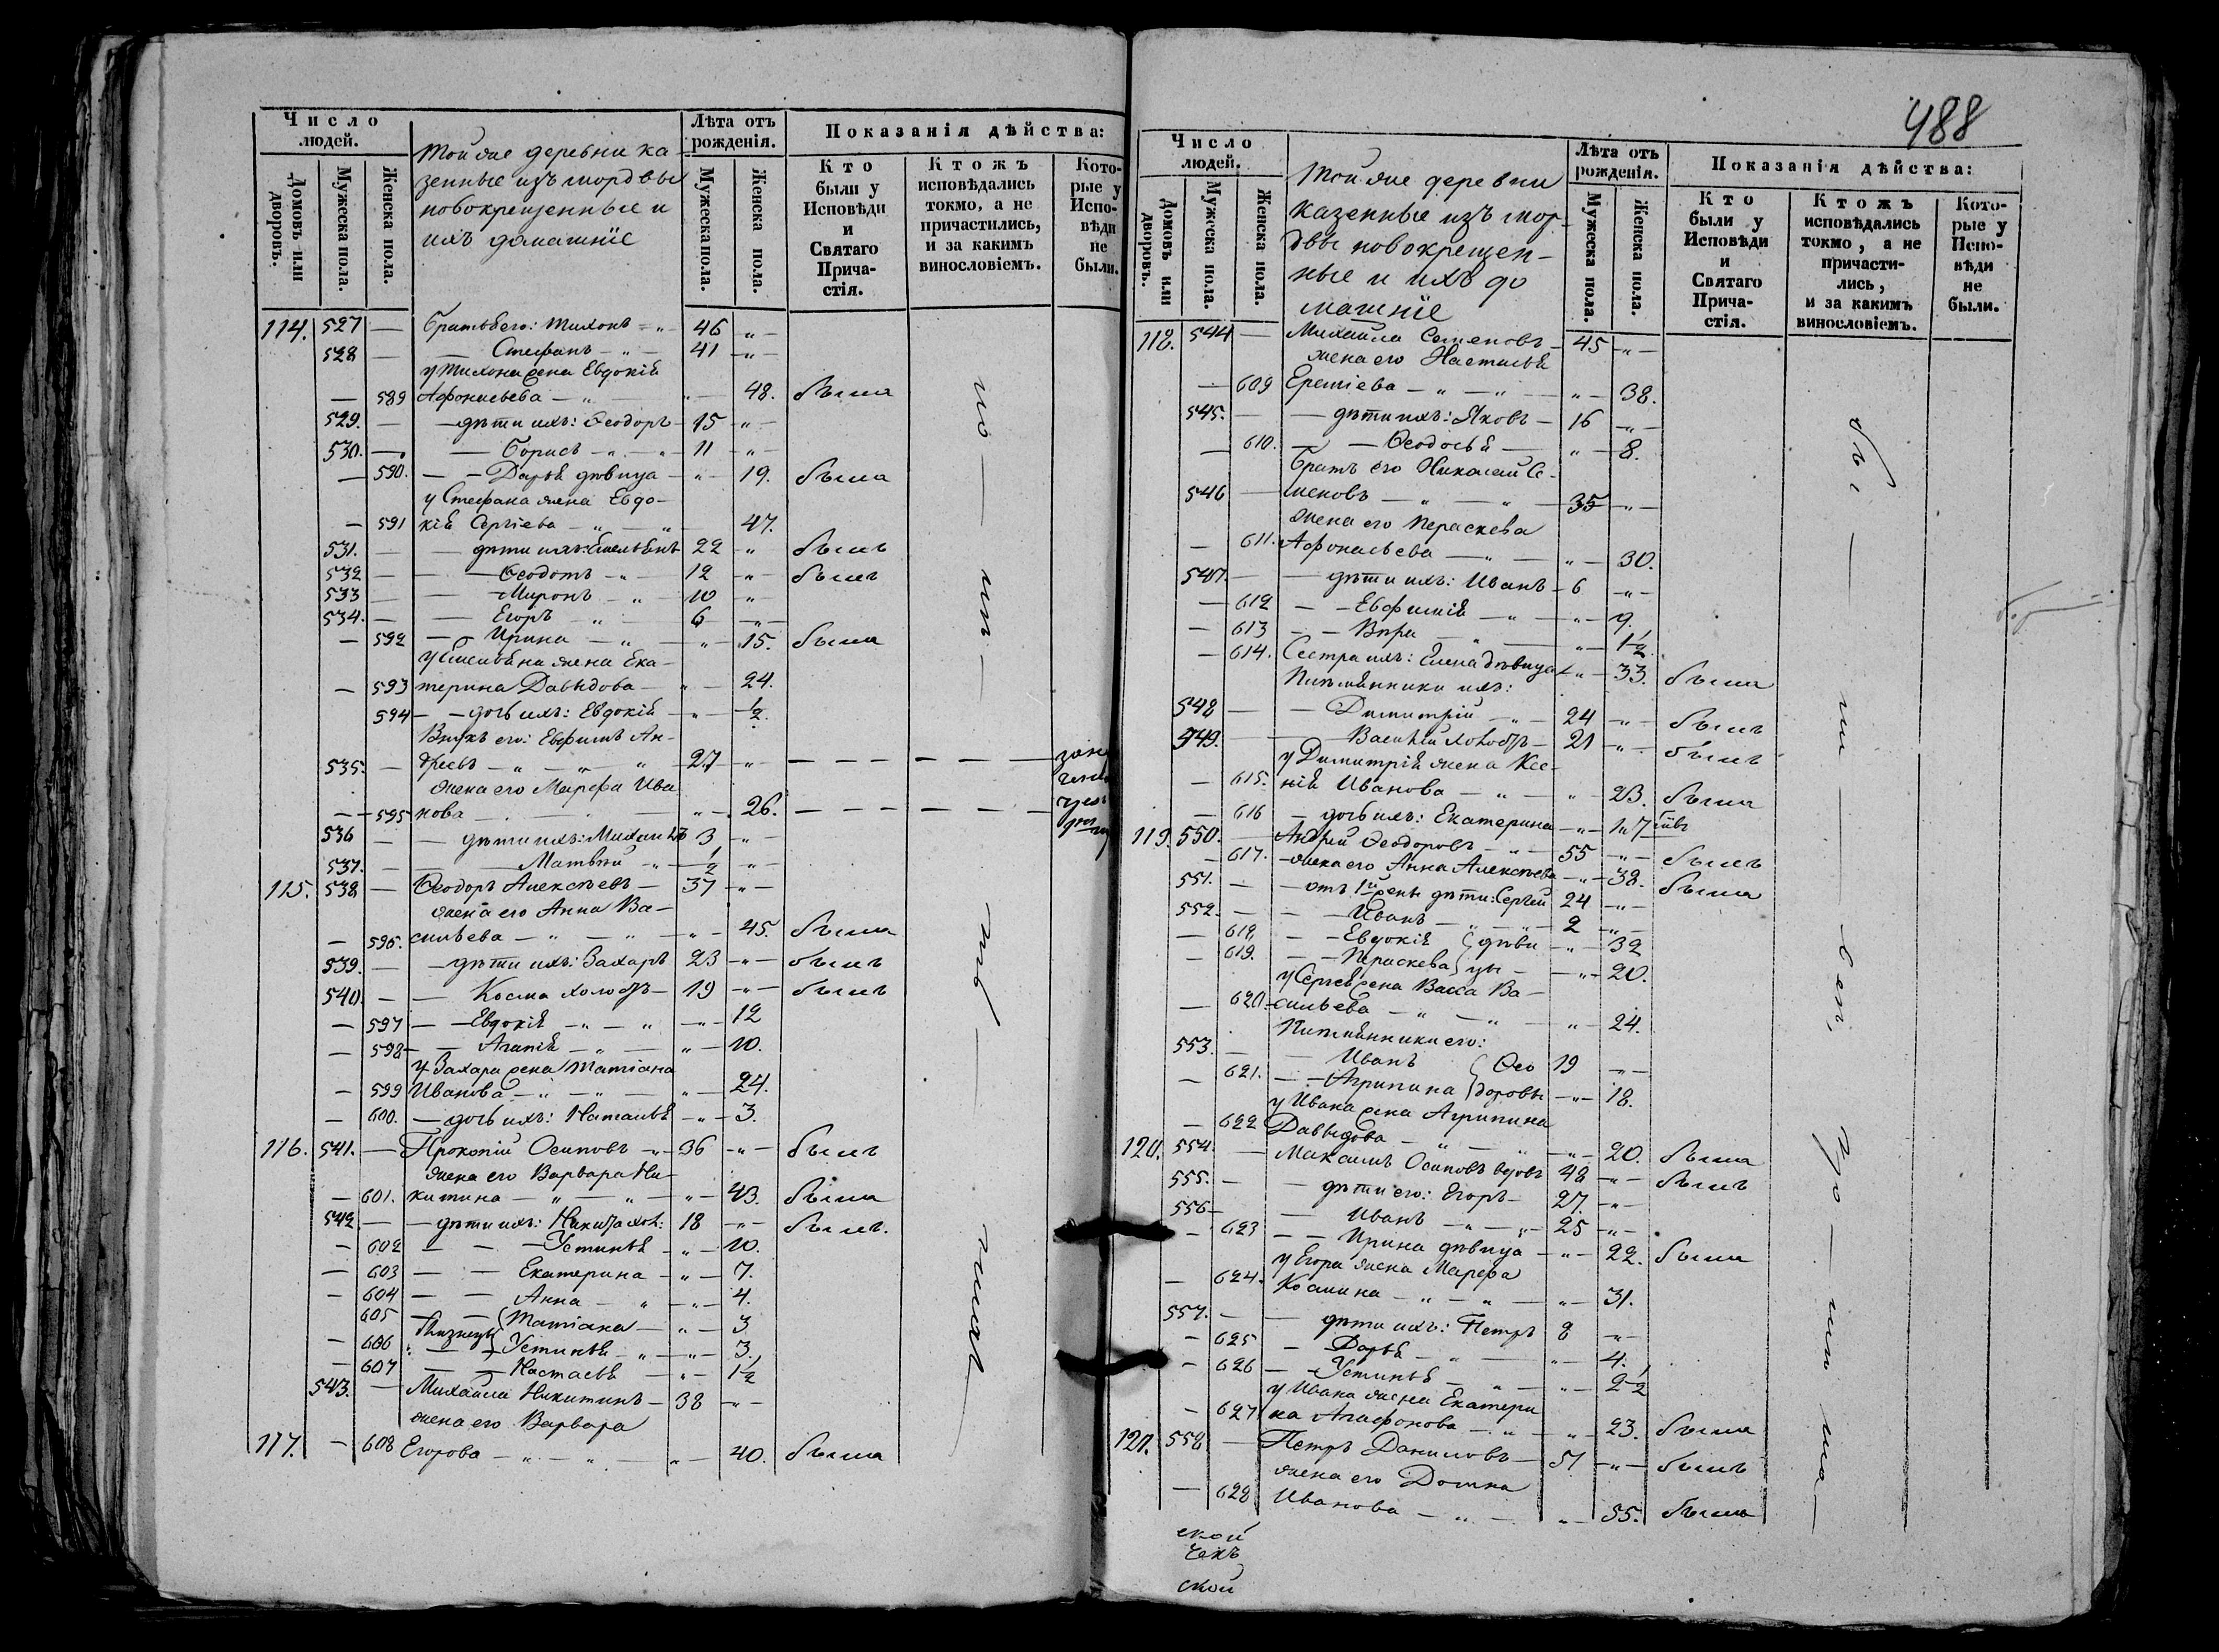 Число людей.
Домовъ или дворовъ.
Мужеска пола.
Женска пола.
Той же деревни ка
зенные изъ мордвы
новокрещенные и
ихъ домашніе
Лѣта отъ рожденія.
Мужеска пола.
Женска пола.
Показанія дѣйства:
Кто были у Исповѣди и Святаго Причастія.
Ктожъ исповѣдались токмо, а не причастились, и за какимъ винословіемъ.
Которые у Исповѣди не были.
114. 527 — Братья его: Тихонъ — 46 —
528 — — Стефанъ — 41 —
у Тихона жена Евдокія
— 589 Афонасьева — — 48. была
529. — — дѣти ихъ: Ѳеодоръ — 15 —
530. — — Борисъ — 11 —
— 590. — — Дарья дѣвица — 19. была
у Стефана жена Евдо-
— 591 кія Сергіева — 47.
531. — — дѣти ихъ: Емельянъ 22 былъ
532 — — Ѳеодотъ — 12 былъ
533 — — Миронъ — 10
534. — — Егоръ — 6
— 592 — Ирина — 15. была
у Емельяна жена Ека-
— 593 терина Давыдова — 24.
594 — — дочь ихъ: Евдокія — 1/2.
Внукъ его: Евфимъ Ан-
535. — дреевъ — 27 —
жена его Марфа Ива
— 595 нова — 26. —
536 — — дѣти ихъ: Михаилъ 3 —
537. — — Матвѣй — 1/2 —
115. 538 — Ѳеодоръ Алексѣевъ — 37 —
жена его Анна Ва-
— 596. сильева — 45. была
539. — — дѣти ихъ: Захаръ 23 — былъ
540. — — Косма холостъ — 19 — былъ
— 597 — — Евдокія — 12
— 598 — — Агапія — 10.
у Захара жена Татіана
— 599 Иванова — 24.
— 600. — дочь ихъ: Наталья — 3.
116. 541. — Прокопій Осиповъ — 36 — былъ
жена его Варвара Ни-
— 601. китина — 43. была
542. — — дѣти ихъ: Никита хол: 18 — былъ.
— 602 — — Устинья — 10.
— 603 — — Екатерина — 7.
— 604 — — Анна — 4.
605 — — Татіана — 3
близнецы
— 606 — Устинья — 3.
— 607 — — Настасья — 1 1/2
543. — Михайла Никитинъ — 38 —
жена его Варвара
117. — 608 Егорова — 40. была
488
Число людей.
Домовъ или дворовъ.
Мужеска пола.
Женска пола.
Той же деревни
казенные изъ мор-
двы новокрещен-
ные и ихъ до
машніе
Лѣта отъ рожденія.
Мужеска пола.
Женска пола.
Показанія дѣйства:
Кто были у Исповѣди и Святаго Причастія.
Ктожъ исповѣдались токмо, а не причастились, и за какимъ винословіемъ.
Которые у Исповѣди не были.
118. 544 — Михайла Семеновъ — 45 —
жена его Настасья
— 609 Еремѣева — 38.
545. — — дѣти ихъ: Яковъ — 16 —
— 610. — — Ѳеодосья — 8.
Братъ его Николай Се-
546 — меновъ — 35 —
жена его Параскева
— 611. Афонасьева — 30.
547. — — дѣти ихъ: Иванъ — 6 —
— 612 — — Евфимія — 9.
— 613 — — Вѣра — 1 1/2.
— 614. Сестра ихъ: Елена дѣвица — 33. была
Племянники ихъ:
548 — — Димитрій — 24 — былъ
549. — Василій холостъ — 21 — былъ
у Димитрія жена Ксе-
— 615. нія Иванова — 23. была
616 — дочь ихъ: Екатерина — 1н
119. 550. — Андрей Ѳеодоровъ — 55 — былъ
— 617. — жена его Анна Алексѣева — 38. была
551. — — отъ 1й жены дѣти: Сергѣй 24 —
552. — — Иванъ — 2 —
— 618 — — Евдокія дѣви — 32
— 619. — — Параскева цы — 20.
у Сергѣя жена Васса Ва-
— 620. сильева — 24.
Племянники его:
553. — — Иванъ Ѳео 19 —
— 621. — — Агрипина доровы — 18.
у Ивана жена Агрипина
— 622 Давыдова — 20. была
120. 554. — Максимъ Осиповъ вдовъ 48 — былъ
555. — — дѣти его: Егоръ — 27. —
556 — — Иванъ — 25 —
— 623 — — Ирина дѣвица — 22. была
у Егора жена Марфа
— 624. Космина — 31.
557. — — дѣти ихъ: Петръ 8 —
— 625 — Дарья — 4.
— 626 — — Устинья — 2 1/2
у Ивана жена Екатери
— 627 на Агафонова — 23. была
121. 558 — Петръ Даниловъ — 51 — былъ
жена его Домна
— 628 Иванова — 55. была
ской
чехъ
ской